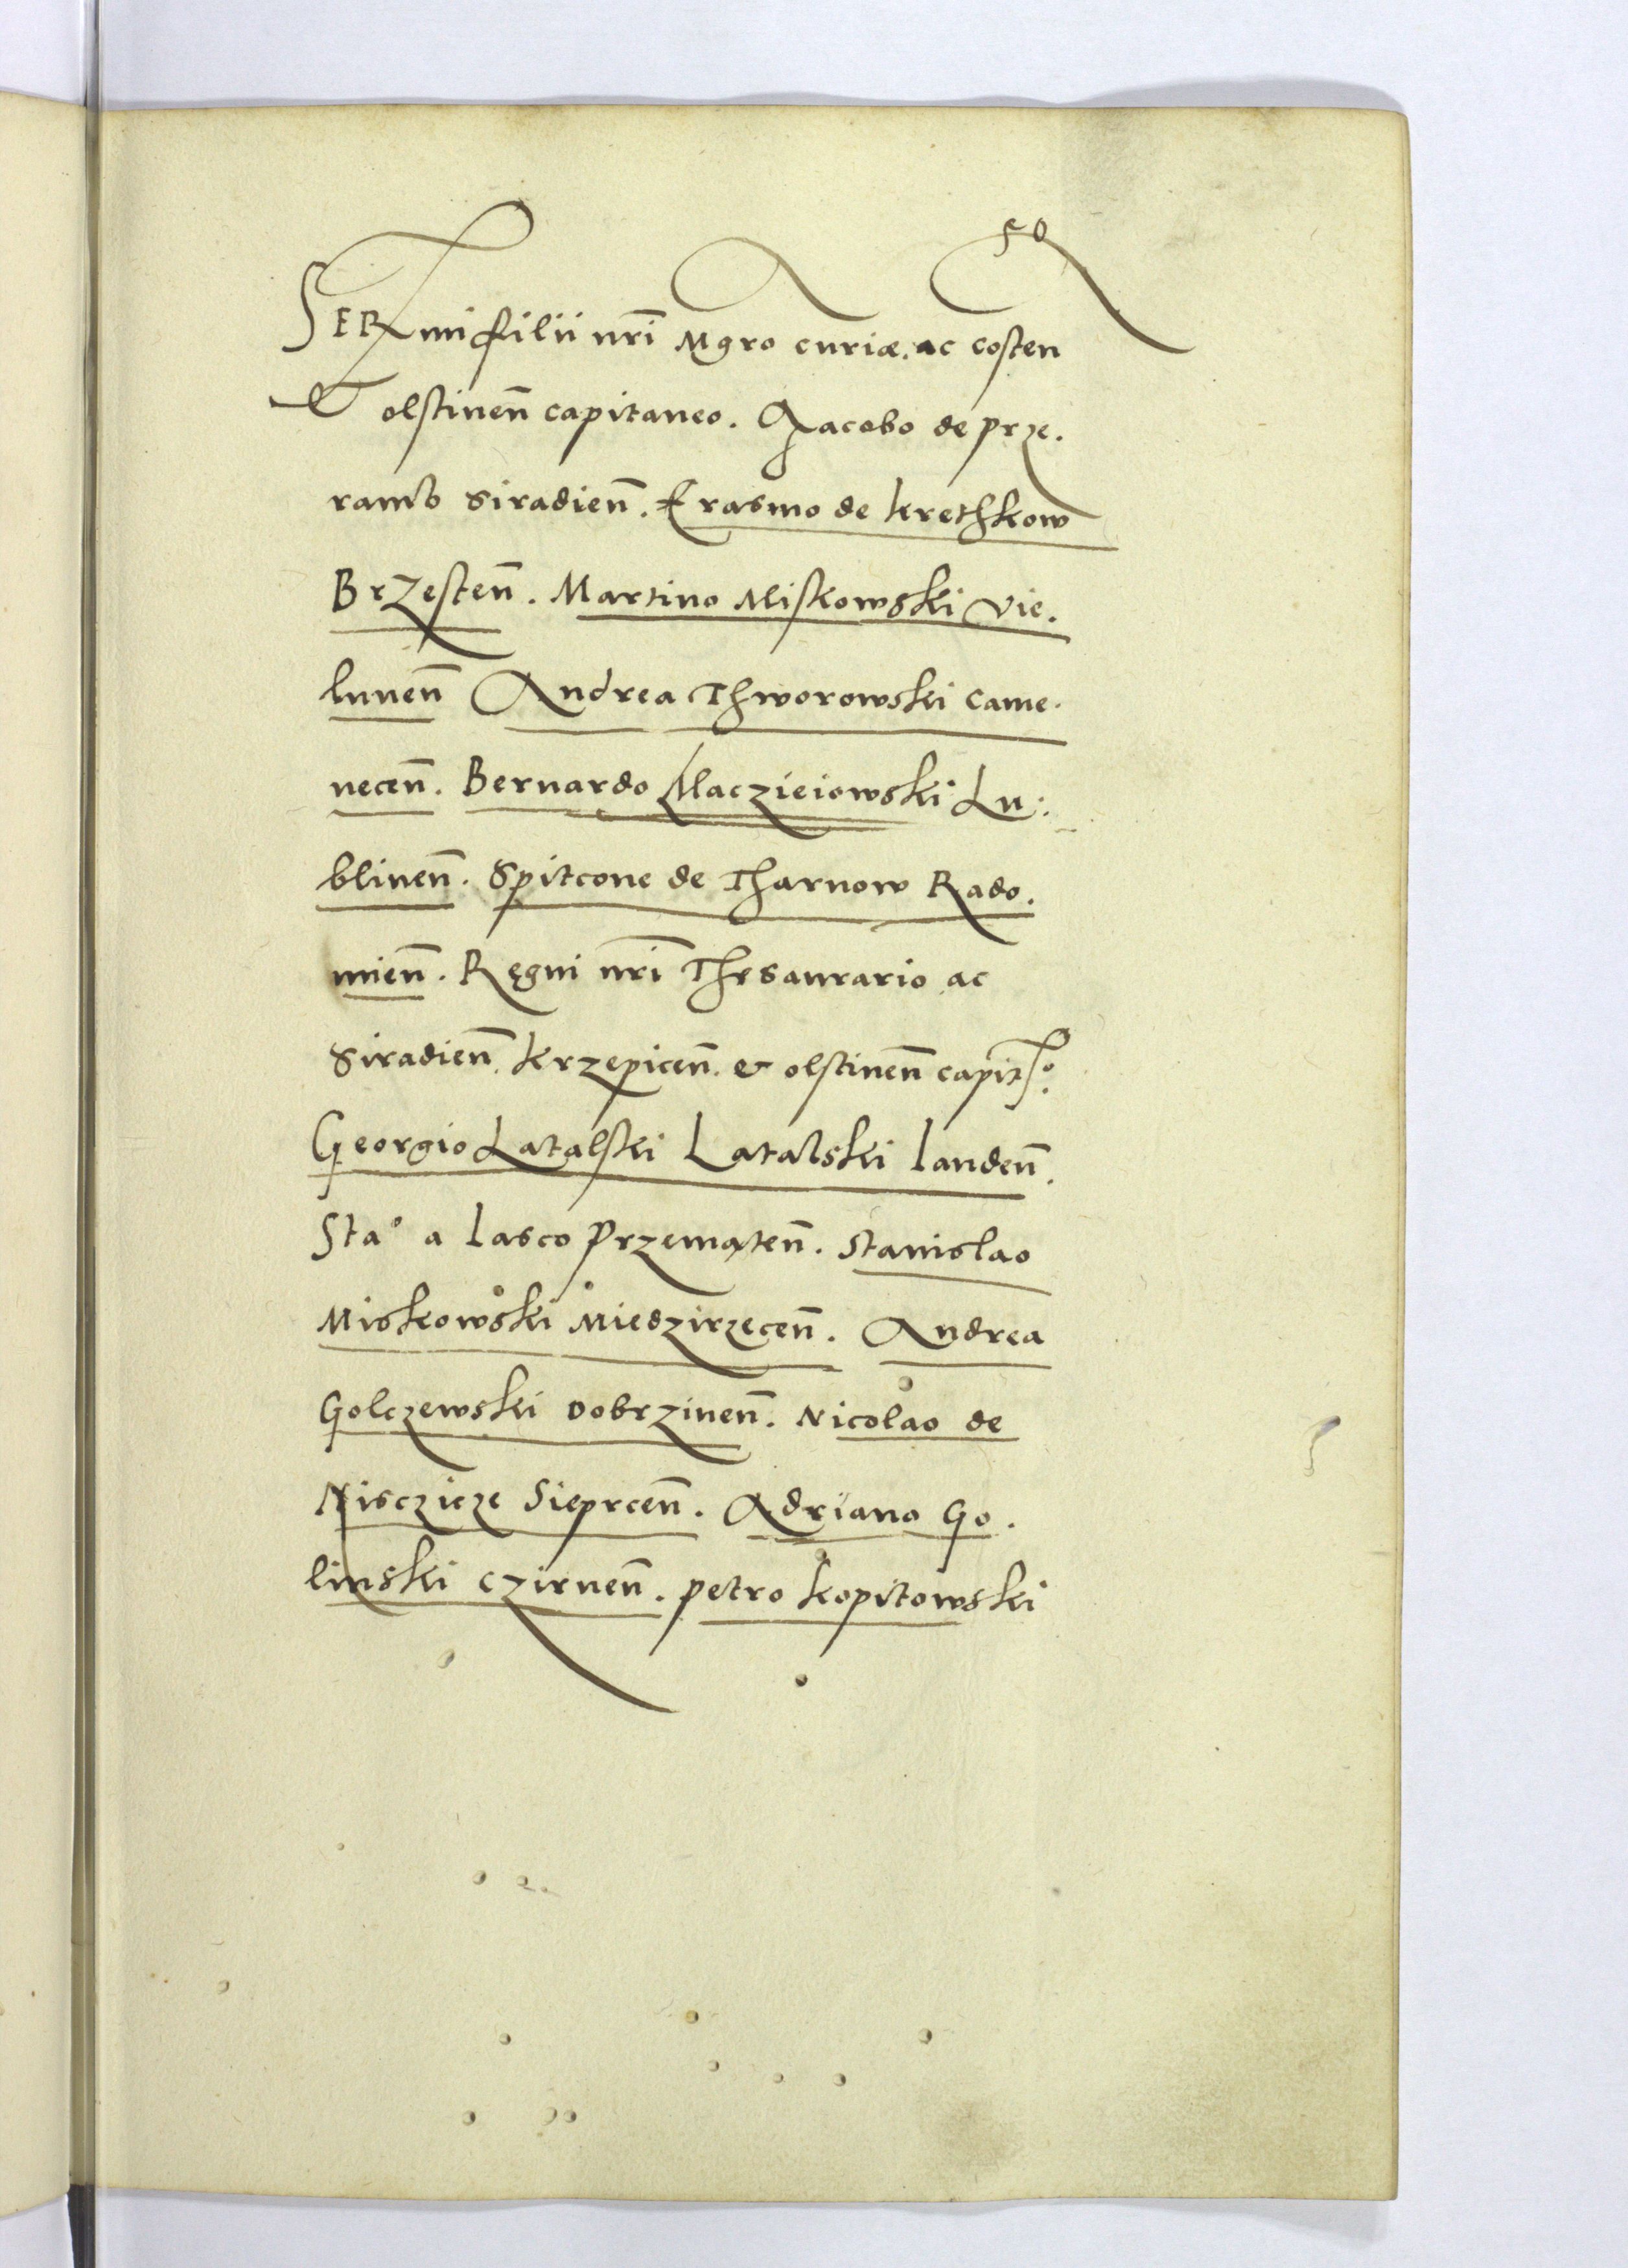 50
SERmi filii nr̄i Mgro curiæ. ac costen
& olstinen̄ capitaneo. Jacobo de prze.
ramb siradien̄. Erasmo de krethkow
Brzesten̄. Martino Miskowski vie.
lunen̄ Andrea Thworowski came.
necen̄. Bernardo Maczieiowski Lu:
blinen̄. Spitcone de Tharnow Rado.
mien̄. Regni nr̄i Thesaurario ac
siradien̄. krzepicen̄. & olstinen̄ capit°.
Georgio Latalski Latalski landen̄.
Sta° a lasco Przematen̄. Stanislao
Miskowski Miedzirzecen̄. Andrea
Golczewski dobrzinen̄. Nicolao de
Nisczicze Sieprcen̄. Adriano Go.
linski czirnen̄. petro kopitowski